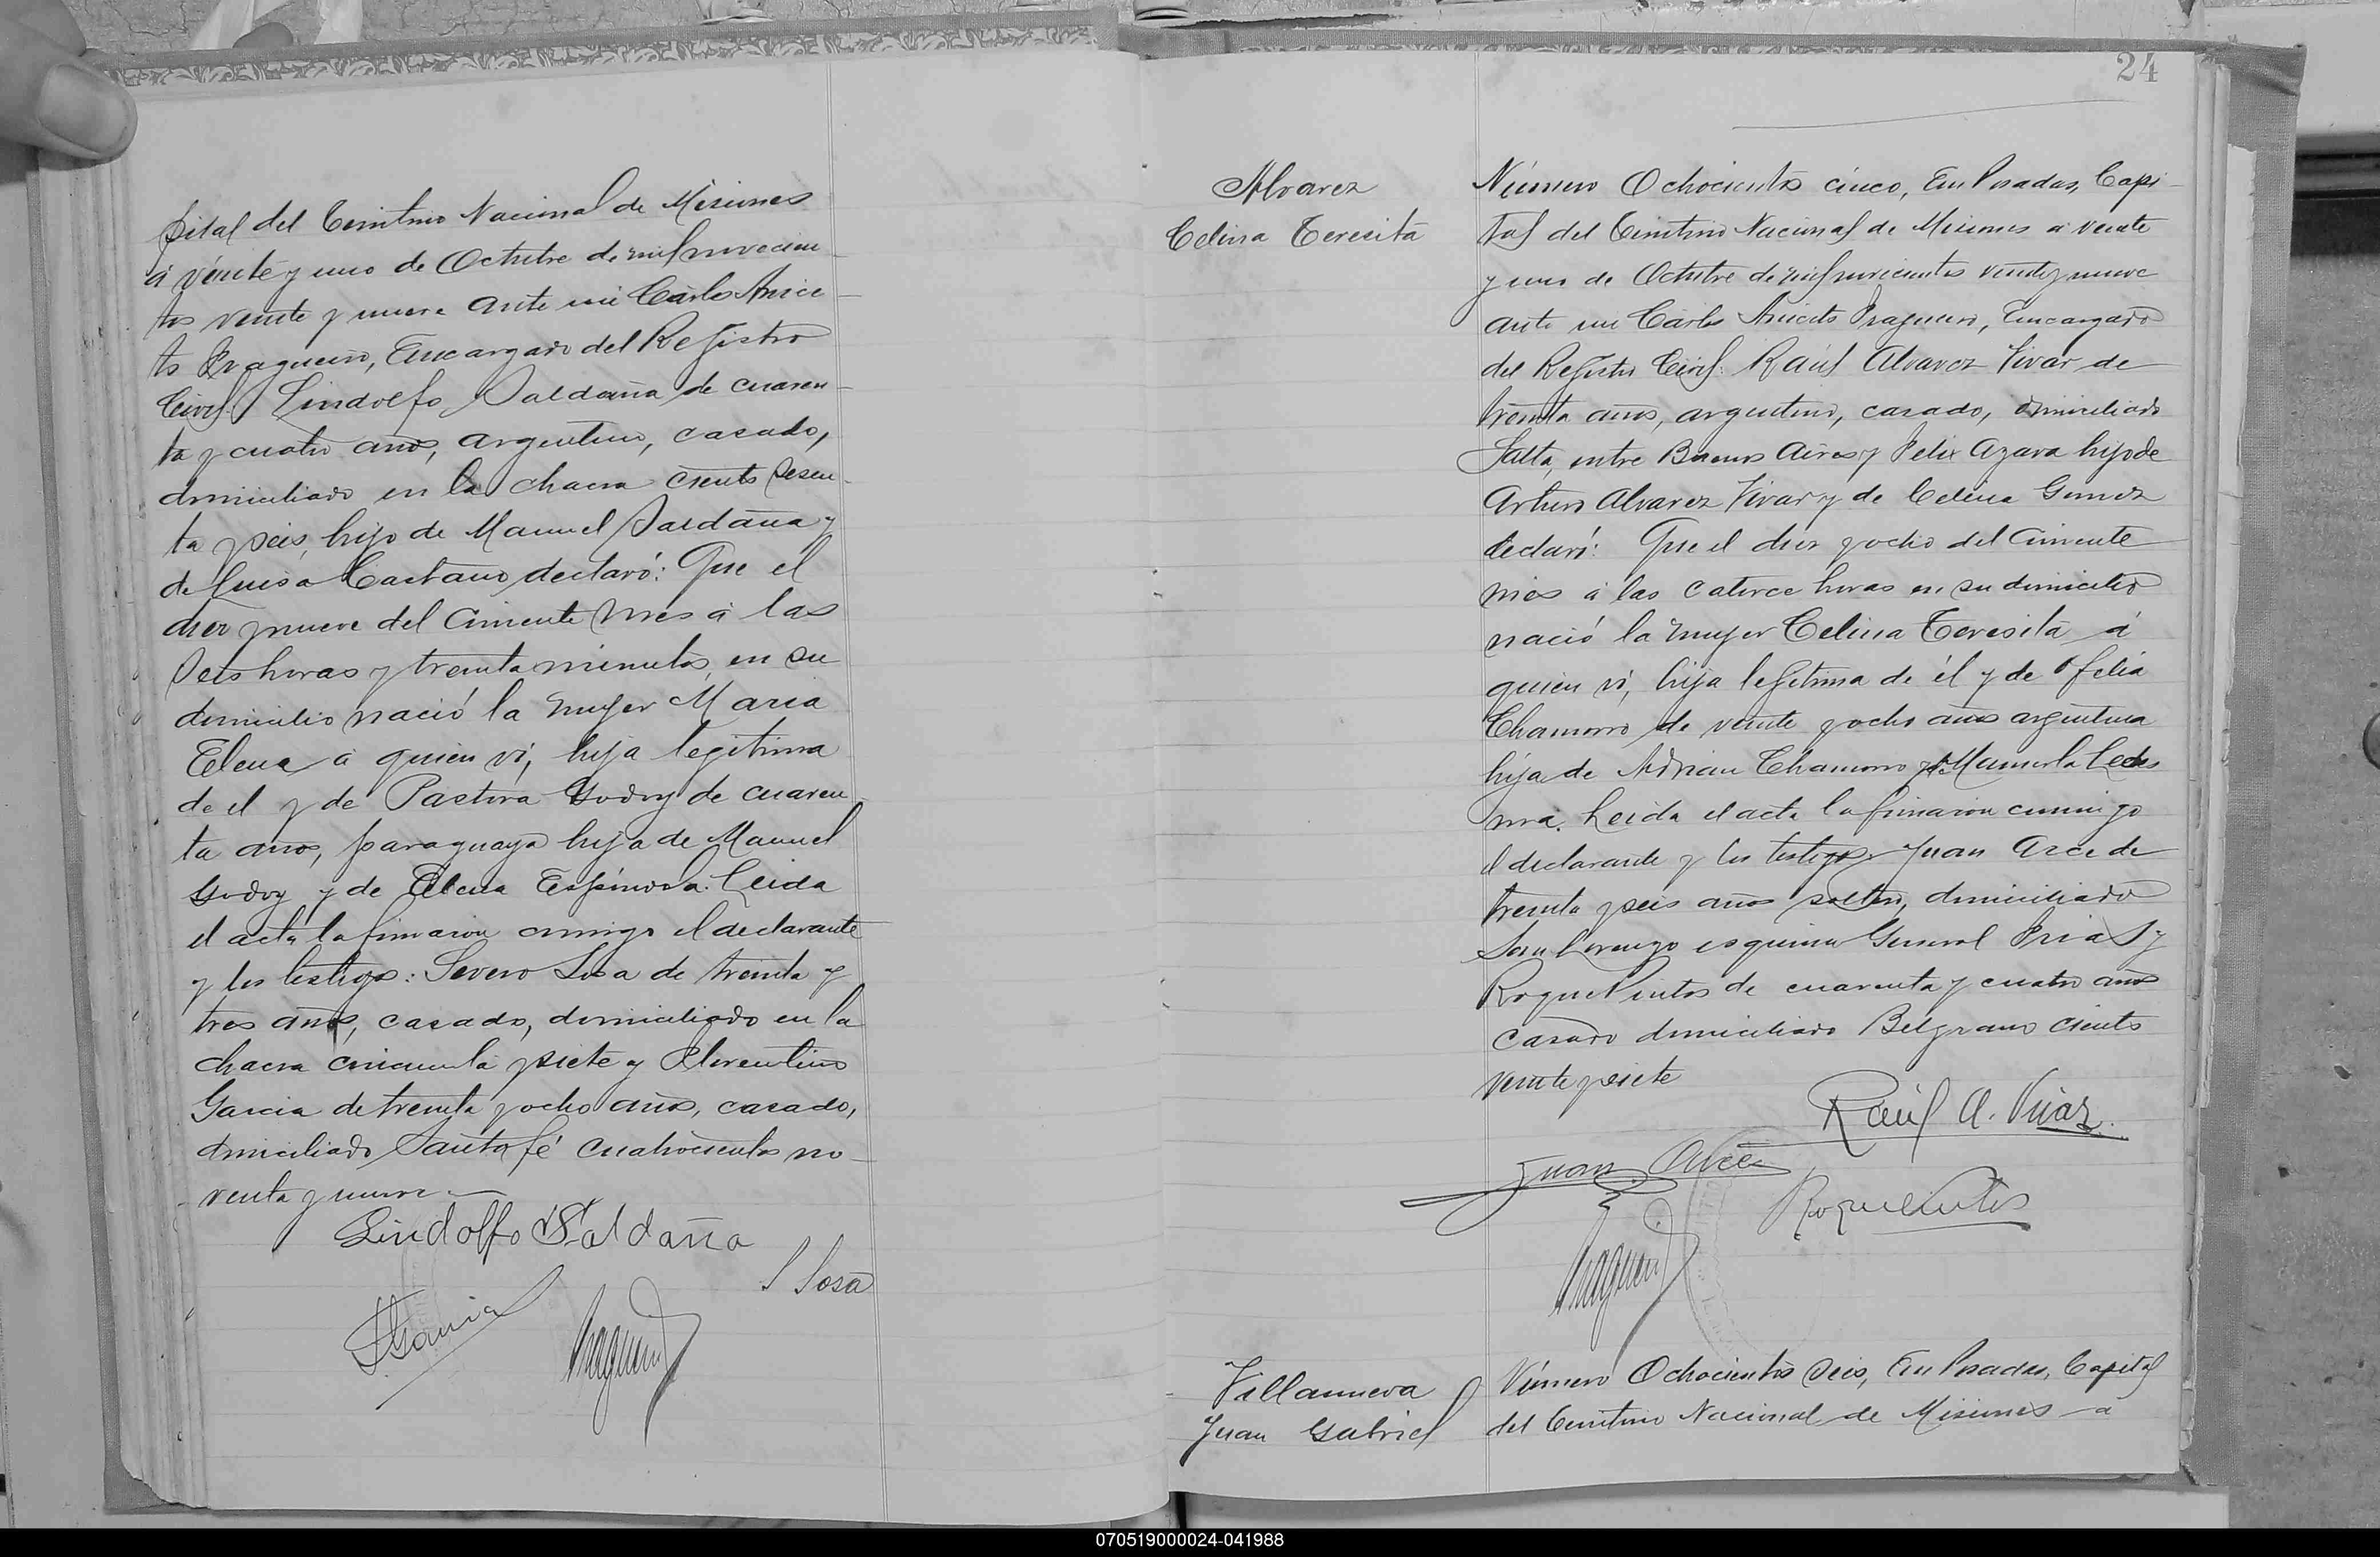 pital del Territorio Nacional de Misiones
á veinte y uno de Octubre de mil novecien
tos veinte y nueve ante mi Carlos Anice
to Fragueiro, Encargado del Registro
Civil. Lindolfo Saldaña de cuaren
ta y cuatro años, argentino, casado,
domiciliado en la chacra ciento sesen
ta y seis, hijo de Manuel Saldaña y
de Luisa Caetano declaró: Que el
diez y nueve del corriente mes á las
seis horas y treinta minutos, en su
domicilio nació la mujer Maria
Elena á quien ví, hija legitima
de el y de Pastora Godoy de cuaren
ta años, paraguaya hija de Manuel
Godoy y de Elena Espinosa. Leida
el acta la firmaron conmigo el declarante
y los testigos: Severo Sosa de treinta y
tres años, casado, domiciliado en la
chacra cincuenta y siete y Florentino
Garcia de treinta y ocho años, casado,
domiciliado Santa fé cuatrocientos no
venta y nueve
Lindolfo Saldaña
S Sosa
FGarcia
Fragueiro
24
Alvarez
Celina Teresita
Número Ochocientos cinco, En Posadas, Capi
tal del Territorio Nacional de Misiones a veinte
y uno de Octubre de mil novecientos veinte y nueve
ante mi Carlos Aniceto Fragueiro, Encargado
del Registro Civil: Raúl Alvarez Vivar de
treinta años, argentino, casado, domiciliado
Salta, entre Buenos Aires y Felix Azara hijo de
Arturo Alvarez Vivar y de Celina Gomez
declaró: Que el diez y ocho del corriente
mes á las catorce horas en su domicilio
nació la mujer Celina Teresita á
quien ví, hija legitima de él y de Ofelia
Chamorro de veinte y ocho años argentina
hija de Adrian Chamorro y de Manuela Ledes
ma. Leida el acta la firmaron conmigo
el declarante y los testigos Juan Arce de
treinta y seis años soltero, domiciliado
San Lorenzo esquina General Frias y
Roque Pintos de cuarenta y cuatro años
casado domiciliado Belgrano ciento
veinte y siete
Raúl A. Vivar
Juan Arce
Roque Pintos
Fragueiro
Villanueva
Juan Gabriel
Número Ochocientos seis, En Posadas, Capital
del Territorio Nacional de Misiones á
070519000024-041988